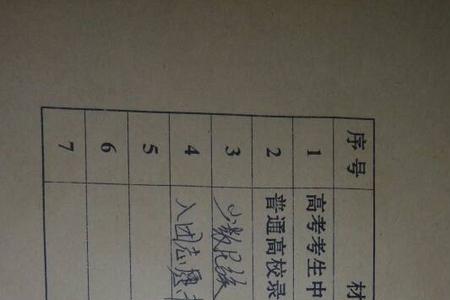 序号 材
1 高考考生中
2 普通高校录
3 少数民族
4 入团志愿书
5
6
7